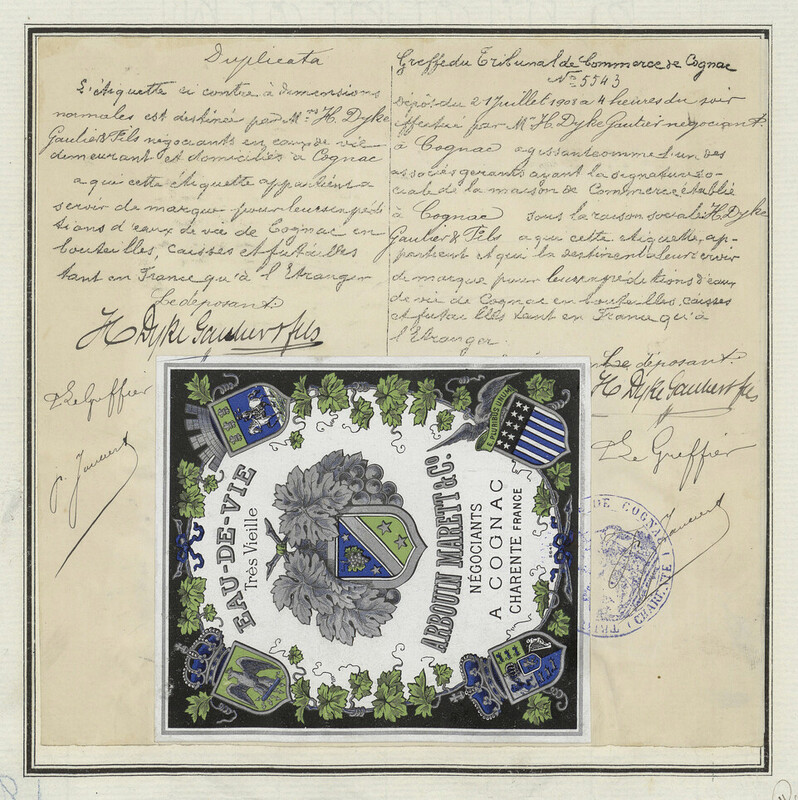 Duplicata
L'étiquette ci contre à dimensions
normales est destinée par Mrs H. Dyke
Gautier & Fils négociants en eaux de vie
demeurant et domiciliés à Cognac
a qui cette étiquette appartient a
servir de marque pour leurs expédi-
tions d'eaux de vie de Cognac en
bouteilles, caisses et futailles
tant en France qu'à l'Etranger
Le déposant
H Dyke Gautier & fils
Le Greffier
Greffe du Tribunal de Commerce de Cognac
No 5543
Dépôt du 21 juillet 1903 à 4 heures du soir
effectué par Mr H. Dyke Gautier négociant
à Cognac agissant comme l'un des
associés gérants ayant la signature so-
ciale de la maison de Commerce établie
à Cognac sous la raison sociale H. Dyke
Gautier & Fils a qui cette etiquette ap-
partient et qui la destinent a leur servir
de marque pour leurs expéditions d'eaux
de vie de Cognac en bouteilles, caisses
et futailles tant en France qu'à
l'Etranger.
Le déposant.
H Dyke Gautier & fils
Le Greffier
E PLURIBUS UNUM
EAU-DE-VIE
Très Vieille
ARBOUIN MARETT & Co.
NÉGOCIANTS
A COGNAC
CHARENTE FRANCE
DE COGNAC
(CHARENTE)